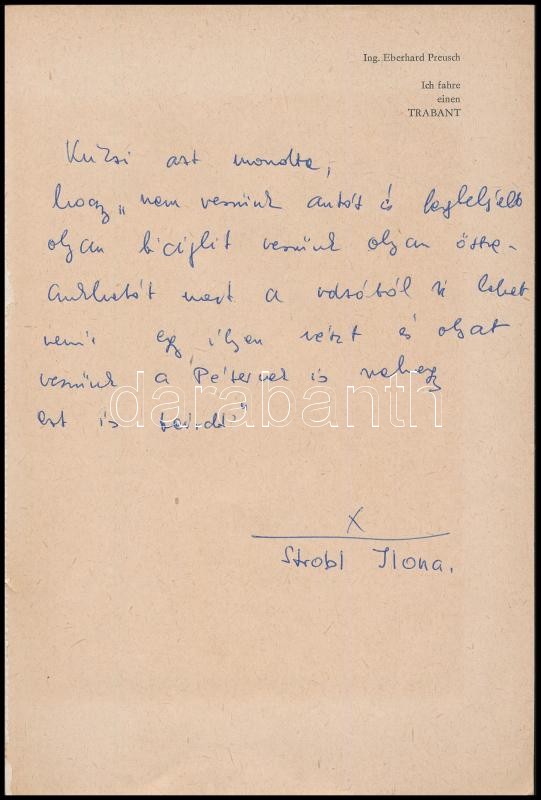 Ing. Eberhard Preusch
Ich fahre
einen
TRABANT
azt mondta,
hogy „nem veszünk autót és legfeljebb
olyan biciglit veszünk olyan össze-
mert a lehet
venni egy ilyen részt és olyat
veszünk a Péternek is nehogy
ezt is
darabanth
X
Strobl Ilona.